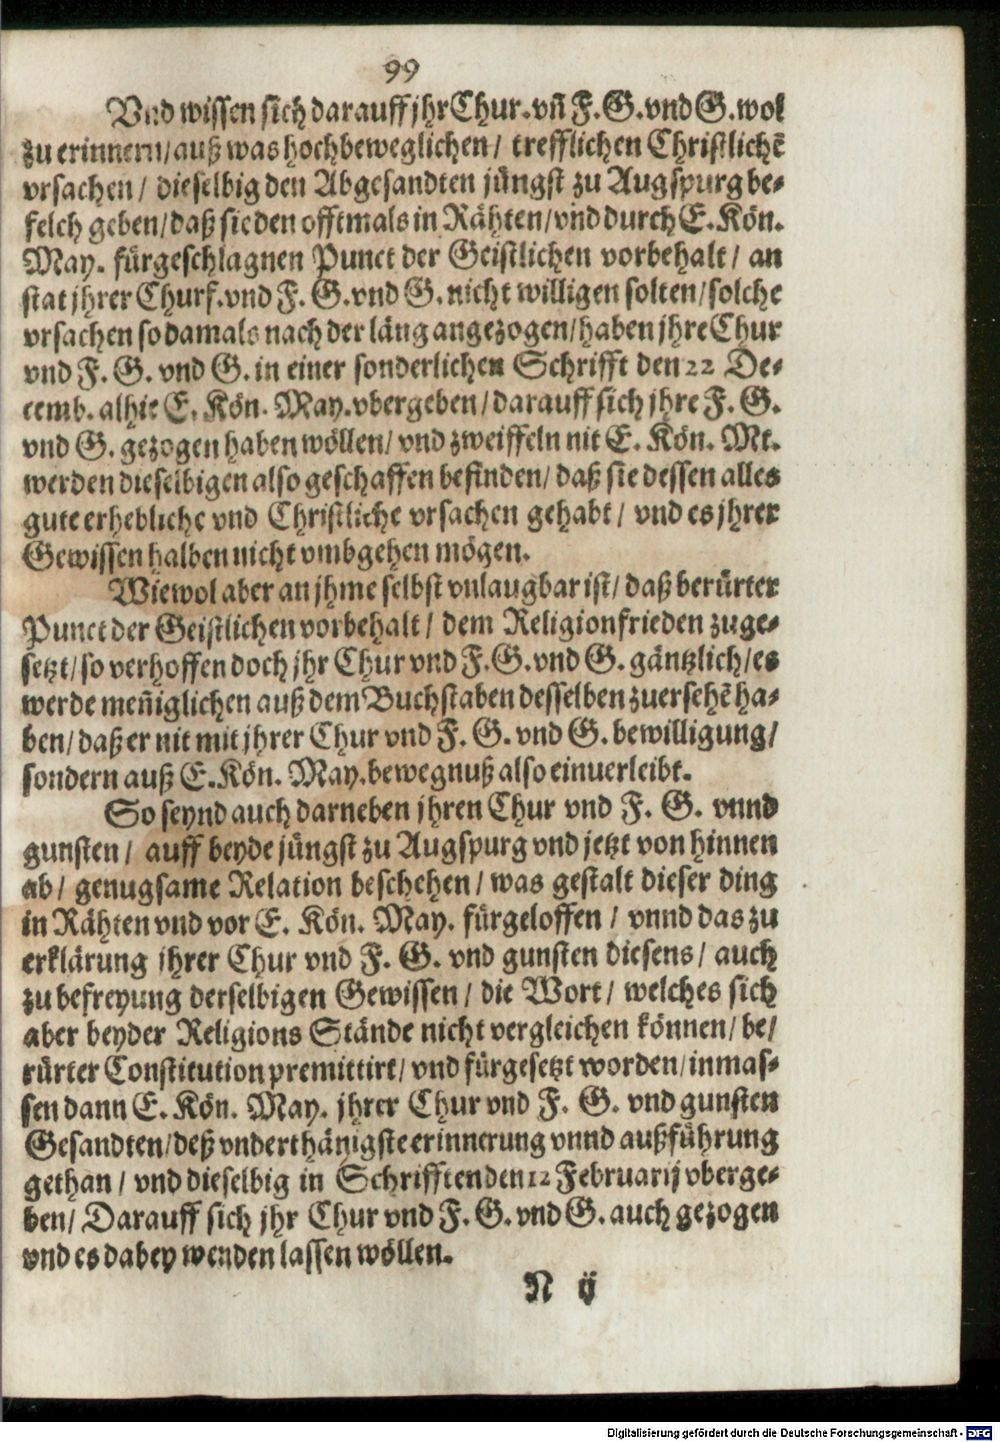 99
Vnd wissen sich darauff jhr Chur. vñ F. G. vnd G. wol
zu erinnern/ auß was hochbeweglichen/ trefflichen Christlichẽ
vrsachen/ dieselbig den Abgesandten jüngst zu Augspurg be-
felch geben/ daß sie den offtmals in Rähten/ vnd durch E. Kön.
May. fürgeschlagnen Punct der Geistlichen vorbehalt/ an
stat jhrer Churf. vnd F. G. vnd G. nicht willigen solten/ solche
vrsachen so damals nach der läng angezogen/ haben jhre Chur
vnd F. G. vnd G. in einer sonderlichen Schrifft den 22 De-
cemb. alhie E. Kön. May. vbergeben/ darauff sich jhre F. G.
vnd G. gezogen haben wöllen/ vnd zweiffeln nit E. Kön. Mt.
werden dieselbigen also geschaffen befinden/ daß sie dessen alles
gute erhebliche vnd Christliche vrsachen gehabt/ vnd es jhrer
Gewissen halben nicht vmbgehen mögen.
Wiewol aber an jhme selbst vnlaugbar ist/ daß berürter
Punct der Geistlichen vorbehalt/ dem Religionfrieden zuge-
setzt/ so verhoffen doch jhr Chur vnd F. G. vnd G. gäntzlich/ es
werde meñiglichen auß dem Buchstaben desselben zuersehẽ ha-
ben/ daß er nit mit jhrer Chur vnd F. G. vnd G. bewilligung/
sondern auß E. Kön. May. bewegnuß also einuerleibt.
So seynd auch darneben jhren Chur vnd F. G. vnnd
gunsten/ auff beyde jüngst zu Augspurg vnd jetzt von hinnen
ab/ genugsame Relation beschehen/ was gestalt dieser ding
in Rähten vnd vor E. Kön. May. fürgeloffen/ vnnd das zu
erklärung jhrer Chur vnd F. G. vnd gunsten diesens/ auch
zu befreyung derselbigen Gewissen/ die Wort/ welches sich
aber beyder Religions Stände nicht vergleichen können/ be/
rürter Constitution premittirt/ vnd fürgesetzt worden/ inmas-
sen dann E. Kön. May. jhrer Chur vnd F. G. vnd gunsten
Gesandten/ deß vnderthänigste erinnerung vnnd außführung
gethan/ vnd dieselbig in Schrifften den 12 Februarij vberge-
ben/ Darauff sich jhr Chur vnd F. G. vnd G. auch gezogen
vnd es dabey wenden lassen wöllen.
N ij
Digitalisierung gefördert durch die Deutsche Forschungsgemeinschaft - DFG